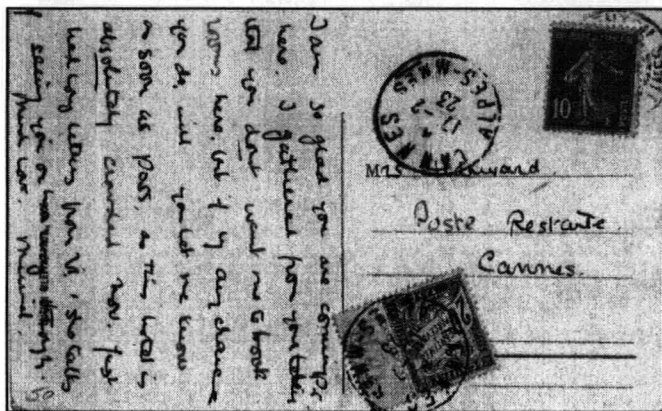 I am so glad you are coming
here. I gathered from your letter
that you don't want me to book
rooms here, but if by any chance
you do, will you let me know
as soon as poss, as this hotel is
absolutely crowded now. Just
had long letters from Vi, she talks
of seeing you on
Muriel.
CANNES
17-2
23
ALPES-MMES
10
Mrs
Poste Restante
Cannes.
2